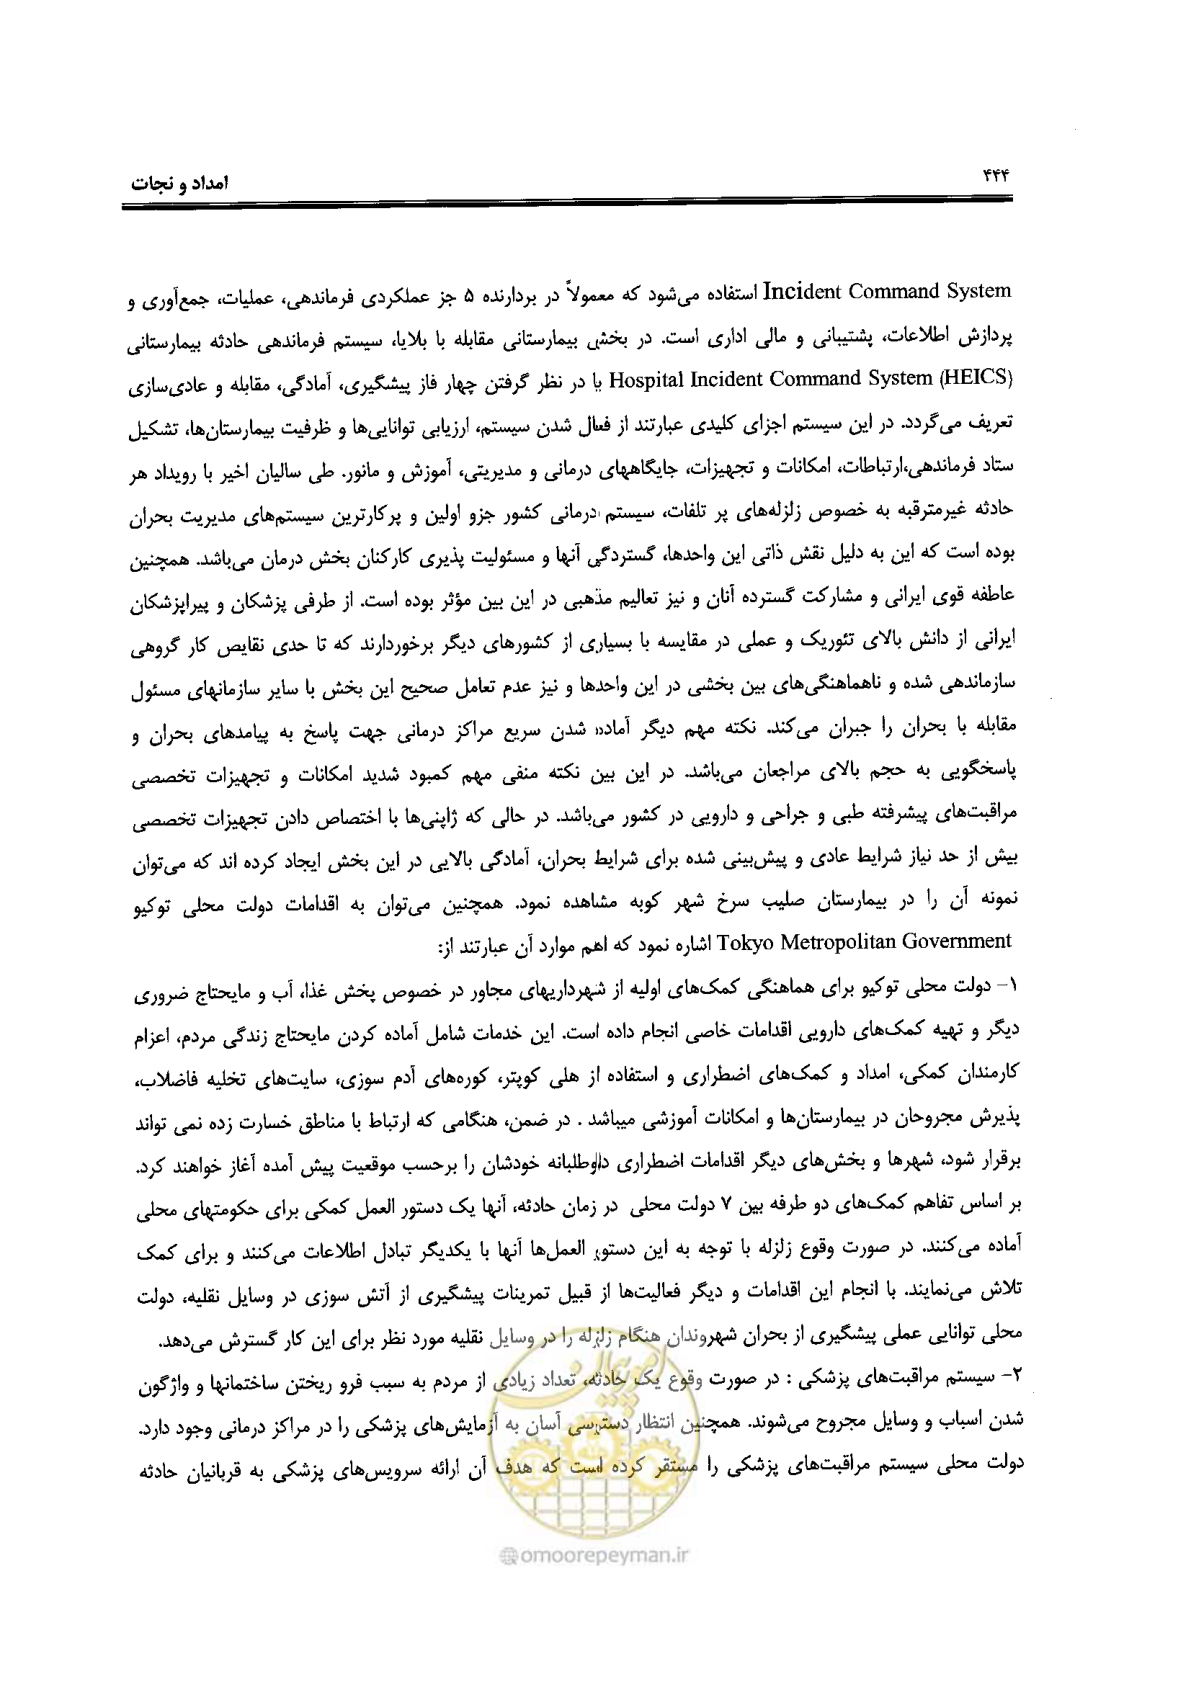 ۴۴۴
امداد و نجات
Incident Command System استفاده می‌شود که معمولاً در بردارنده ۵ جز عملکردی فرماندهی، عملیات، جمع‌آوری و
پردازش اطلاعات، پشتیبانی و مالی اداری است. در بخش بیمارستانی مقابله با بلایا، سیستم فرماندهی حادثه بیمارستانی
Hospital Incident Command System (HEICS) با در نظر گرفتن چهار فاز پیشگیری، آمادگی، مقابله و عادی‌سازی
تعریف می‌گردد. در این سیستم اجزای کلیدی عبارتند از فعال شدن سیستم، ارزیابی توانایی‌ها و ظرفیت بیمارستان‌ها، تشکیل
ستاد فرماندهی،ارتباطات، امکانات و تجهیزات، جایگاههای درمانی و مدیریتی، آموزش و مانور. طی سالیان اخیر با رویداد هر
حادثه غیرمترقبه به خصوص زلزله‌های پر تلفات، سیستم درمانی کشور جزو اولین و پرکارترین سیستم‌های مدیریت بحران
بوده است که این به دلیل نقش ذاتی این واحدها، گستردگی آنها و مسئولیت پذیری کارکنان بخش درمان می‌باشد. همچنین
عاطفه قوی ایرانی و مشارکت گسترده آنان و نیز تعالیم مذهبی در این بین مؤثر بوده است. از طرفی پزشکان و پیراپزشکان
ایرانی از دانش بالای تئوریک و عملی در مقایسه با بسیاری از کشورهای دیگر برخوردارند که تا حدی نقایص کار گروهی
سازماندهی شده و ناهماهنگی‌های بین بخشی در این واحدها و نیز عدم تعامل صحیح این بخش با سایر سازمانهای مسئول
مقابله با بحران را جبران می‌کند. نکته مهم دیگر آماده شدن سریع مراکز درمانی جهت پاسخ به پیامدهای بحران و
پاسخگویی به حجم بالای مراجعان می‌باشد. در این بین نکته منفی مهم کمبود شدید امکانات و تجهیزات تخصصی
مراقبت‌های پیشرفته طبی و جراحی و دارویی در کشور می‌باشد. در حالی که ژاپنی‌ها با اختصاص دادن تجهیزات تخصصی
بیش از حد نیاز شرایط عادی و پیش‌بینی شده برای شرایط بحران، آمادگی بالایی در این بخش ایجاد کرده اند که می‌توان
نمونه آن را در بیمارستان صلیب سرخ شهر کوبه مشاهده نمود. همچنین می‌توان به اقدامات دولت محلی توکیو
Tokyo Metropolitan Government اشاره نمود که اهم موارد آن عبارتند از:
۱- دولت محلی توکیو برای هماهنگی کمک‌های اولیه از شهرداریهای مجاور در خصوص پخش غذا، آب و مایحتاج ضروری
دیگر و تهیه کمک‌های دارویی اقدامات خاصی انجام داده است. این خدمات شامل آماده کردن مایحتاج زندگی مردم، اعزام
کارمندان کمکی، امداد و کمک‌های اضطراری و استفاده از هلی کوپتر، کوره‌های آدم سوزی، سایت‌های تخلیه فاضلاب،
پذیرش مجروحان در بیمارستان‌ها و امکانات آموزشی میباشد . در ضمن، هنگامی که ارتباط با مناطق خسارت زده نمی تواند
برقرار شود، شهرها و بخش‌های دیگر اقدامات اضطراری داوطلبانه خودشان را برحسب موقعیت پیش آمده آغاز خواهند کرد.
بر اساس تفاهم کمک‌های دو طرفه بین ۷ دولت محلی در زمان حادثه، آنها یک دستور العمل کمکی برای حکومتهای محلی
آماده می‌کنند. در صورت وقوع زلزله با توجه به این دستور العمل‌ها آنها با یکدیگر تبادل اطلاعات می‌کنند و برای کمک
تلاش می‌نمایند. با انجام این اقدامات و دیگر فعالیت‌ها از قبیل تمرینات پیشگیری از آتش سوزی در وسایل نقلیه، دولت
محلی توانایی عملی پیشگیری از بحران شهروندان هنگام زلزله را در وسایل نقلیه مورد نظر برای این کار گسترش می‌دهد.
۲- سیستم مراقبت‌های پزشکی : در صورت وقوع یک حادثه، تعداد زیادی از مردم به سبب فرو ریختن ساختمانها و واژگون
شدن اسباب و وسایل مجروح می‌شوند. همچنین انتظار دسترسی آسان به آزمایش‌های پزشکی را در مراکز درمانی وجود دارد.
دولت محلی سیستم مراقبت‌های پزشکی را مستقر کرده است که هدف آن ارائه سرویس‌های پزشکی به قربانیان حادثه
امور پیمان
@omoorepeyman.ir